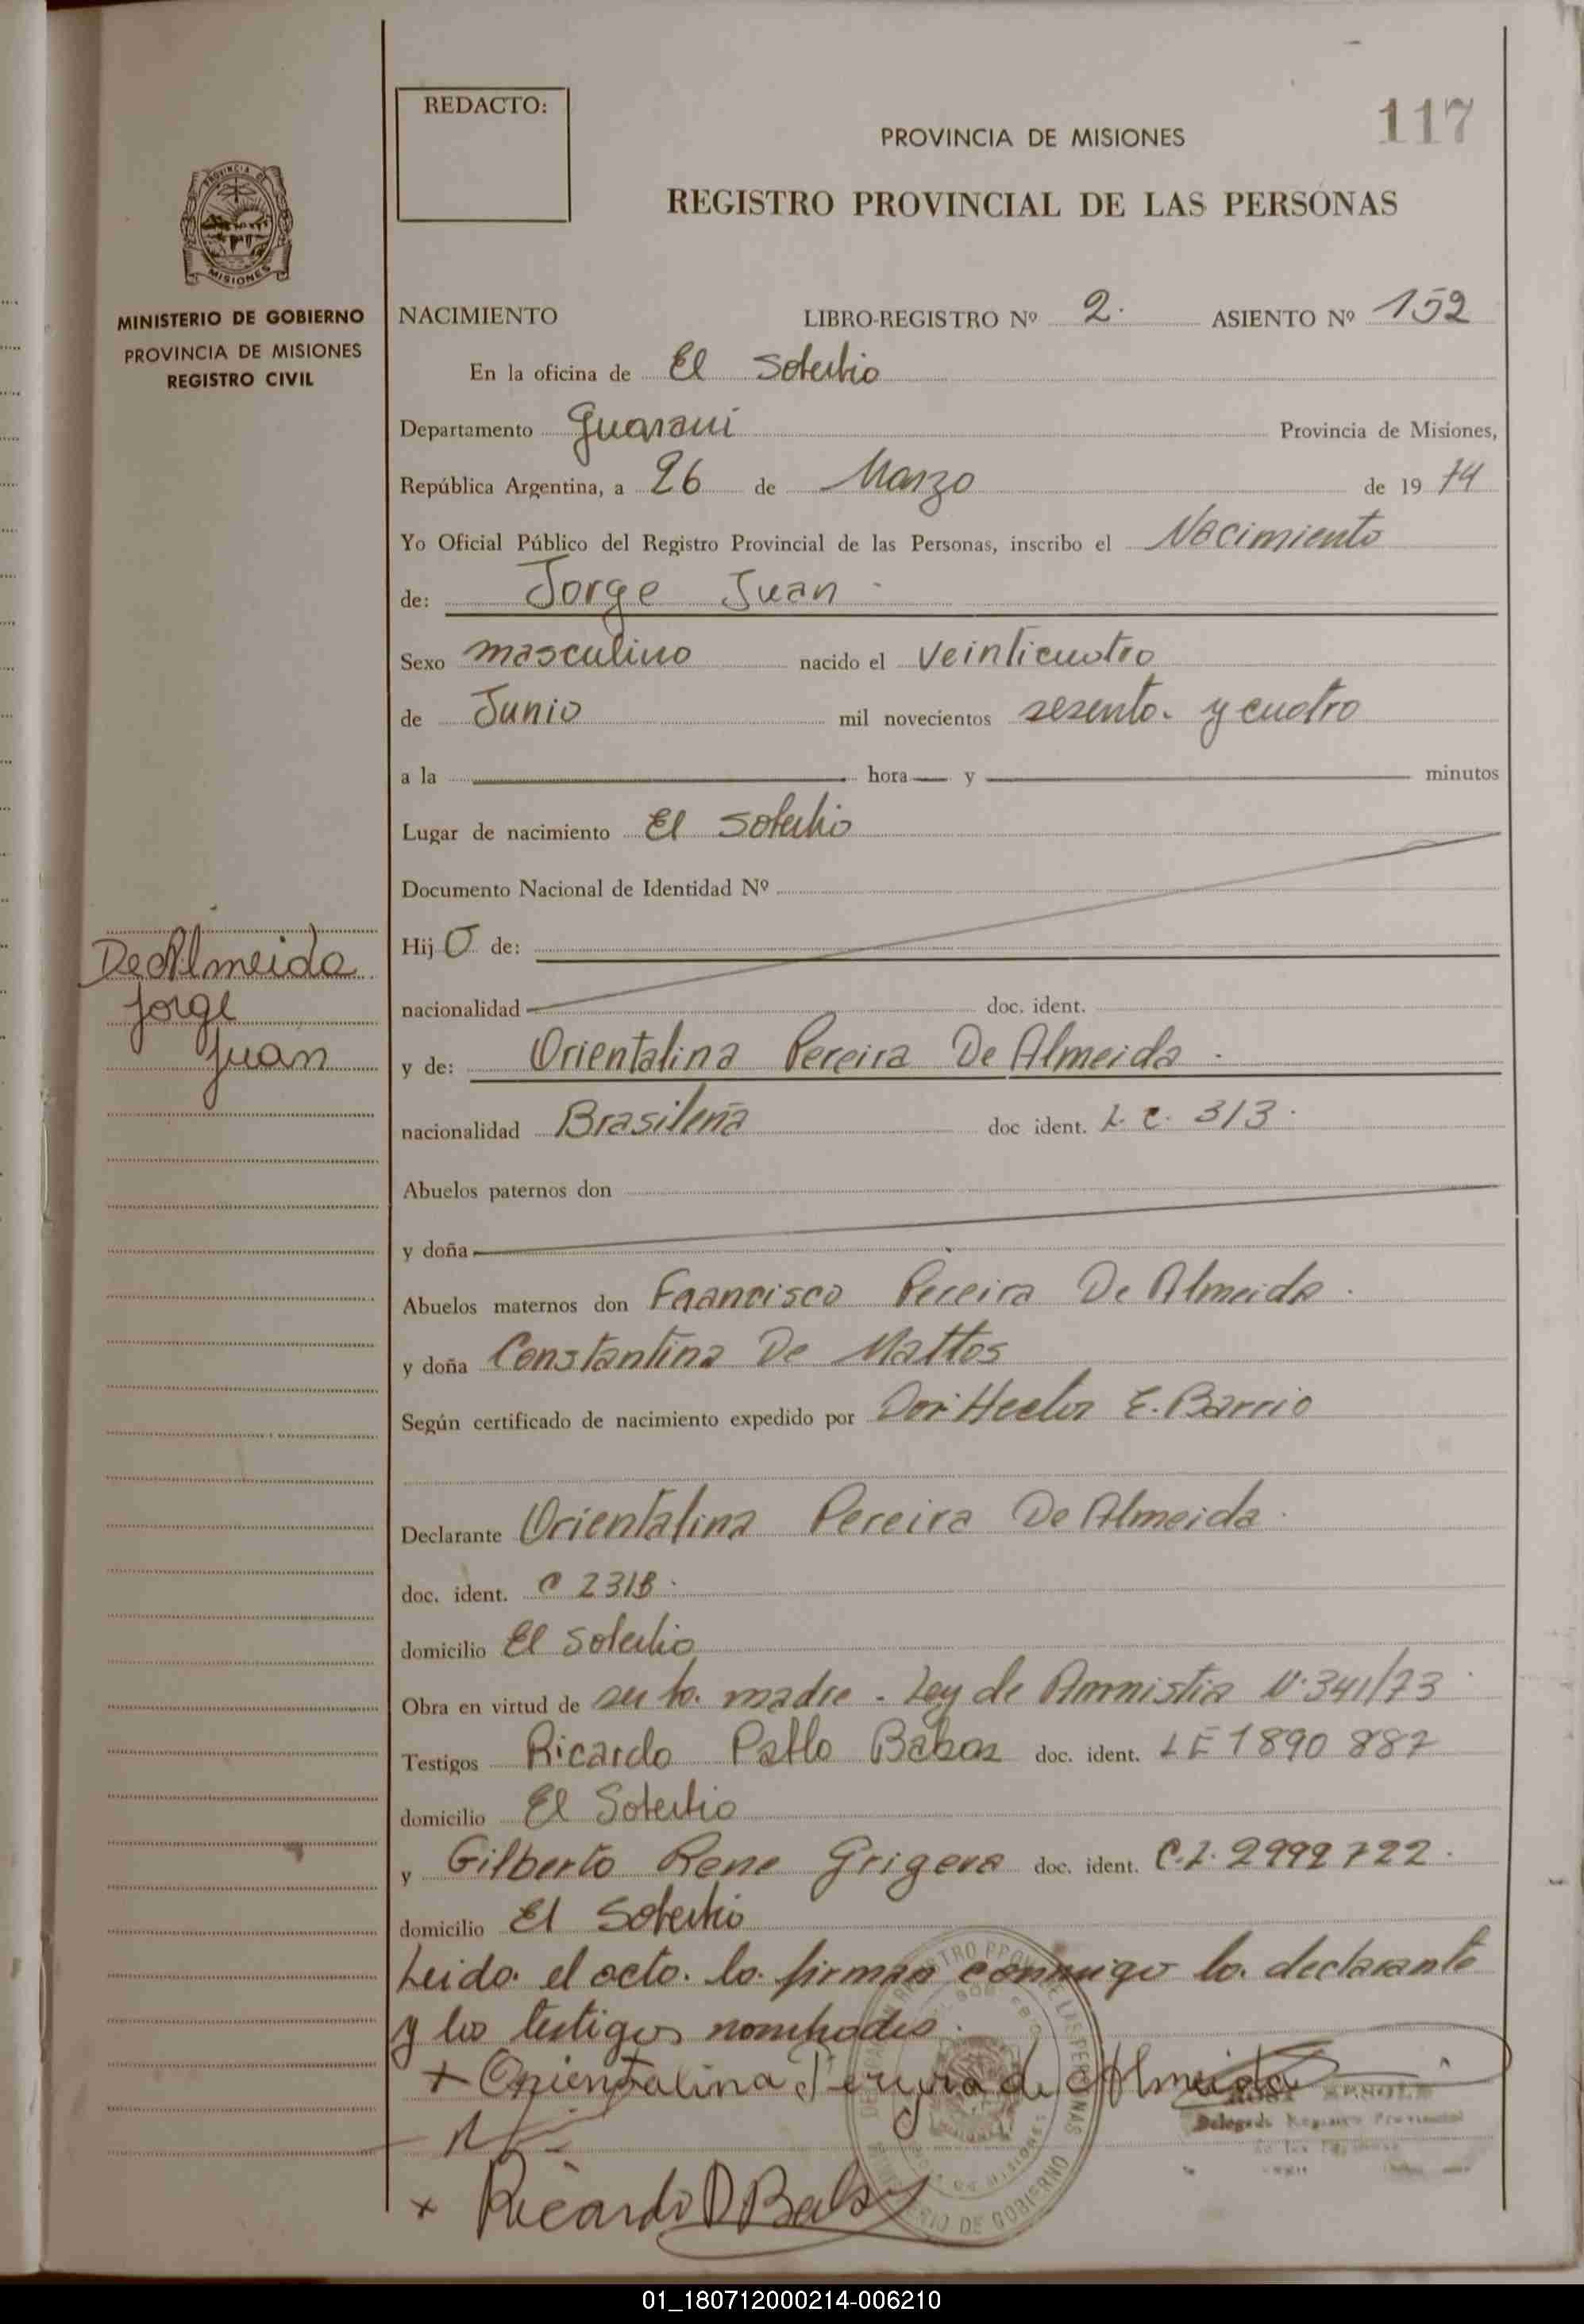 REDACTO:
117
PROVINCIA DE MISIONES
REGISTRO PROVINCIAL DE LAS PERSONAS
PROVINCIA DE
MISIONES
MINISTERIO DE GOBIERNO
PROVINCIA DE MISIONES
REGISTRO CIVIL
NACIMIENTO LIBRO-REGISTRO Nº 2. ASIENTO Nº 152
En la oficina de El Soberbio
Departamento Guarani Provincia de Misiones,
República Argentina, a 26 de Marzo de 19 74
Yo Oficial Público del Registro Provincial de las Personas, inscribo el Nacimiento
de: Jorge Juan
Sexo masculino nacido el veinticuatro
de Junio mil novecientos sesenta y cuatro
a la hora y minutos
Lugar de nacimiento El Soberbio
Documento Nacional de Identidad Nº
Hij o de:
De Almeida
Jorge
Juan
nacionalidad doc. ident.
y de: Orientalina Pereira De Almeida
nacionalidad Brasileña doc ident. L. C. 313
Abuelos paternos don
y doña
Abuelos maternos don Francisco Pereira De Almeida
y doña Constantina De Mattos
Según certificado de nacimiento expedido por Hector E. Barrio
Declarante Orientalina Pereira De Almeida
doc. ident. C 2313
domicilio El Soberbio
Obra en virtud de ser la madre - Ley de Amnistia Nº 341/73
Testigos Ricardo Pablo doc. ident. LE 1890 887
domicilio El Soberbio
y Gilberto Rene Grigera doc. ident. C.I. 2992722.
domicilio El Soberbio
Leida el acta la firman conmigo la declarante
y los testigos nombrados.
+ Orientalina Pereira de Almeida
Delegado Registro Provincial
de las Personas
+ Ricardo
MINISTERIO DE GOBIERNO
01_180712000214-006210